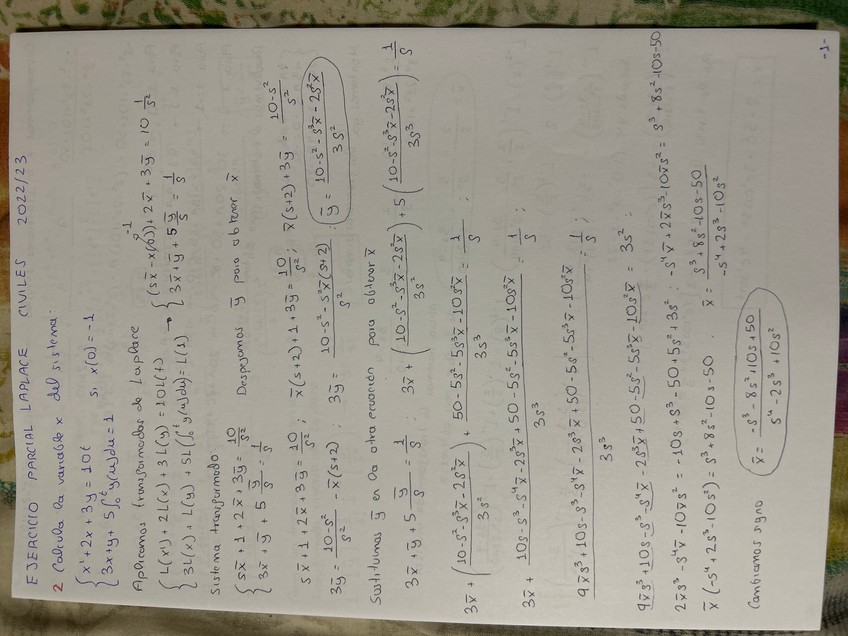 EJERCICIO PARCIAL LAPLACE CIVILES 2022/23
2 Calcula la variable x del sistema:
{ x' + 2x + 3y = 10t
{ 3x + y + 5∫₀ᵗ y(u)du = 1 si x(0) = -1
Aplicamos transformadas de Laplace
{ L(x') + 2L(x) + 3L(y) = 10L(t)
{ 3L(x) + L(y) + 5L(∫₀ᵗ y(u)du) = L(1) → { (sx̄ - x(0)) + 2x̄ + 3ȳ = 10 1/s²
-1
{ 3x̄ + ȳ + 5 ȳ/s = 1/s
Sistema transformado
{ sx̄ + 1 + 2x̄ + 3ȳ = 10/s²
{ 3x̄ + ȳ + 5 ȳ/s = 1/s Despejamos ȳ para obtener x̄
sx̄ + 1 + 2x̄ + 3ȳ = 10/s² ; x̄(s+2) + 1 + 3ȳ = 10/s² ; x̄(s+2) + 3ȳ = (10-s²)/s²
3ȳ = (10-s²)/s² - x̄(s+2) ; 3ȳ = (10-s²-s²x̄(s+2))/s² ; ȳ = (10-s²-s³x̄-2s²x̄)/3s²
Sustituimos ȳ en la otra ecuación para obtener x̄
3x̄ + ȳ + 5 ȳ/s = 1/s ; 3x̄ + ((10-s²-s³x̄-2s²x̄)/3s²) + 5((10-s²-s³x̄-2s²x̄)/3s³) = 1/s
3x̄ + ((10-s²-s³x̄-2s²x̄)/3s²) + (50-5s²-5s³x̄-10s²x̄)/3s³ = 1/s ;
3x̄ + (10s-s³-s⁴x̄-2s³x̄+50-5s²-5s³x̄-10s²x̄)/3s³ = 1/s ;
(9x̄s³+10s-s³-s⁴x̄-2s³x̄+50-5s²-5s³x̄-10s²x̄)/3s³ = 1/s ;
9x̄s³+10s-s³-s⁴x̄-2s³x̄+50-5s²-5s³x̄-10s²x̄ = 3s² ;
2x̄s³-s⁴x̄-10x̄s² = -10s+s³-50+5s²+3s² ; -s⁴x̄+2x̄s³-10x̄s² = s³+8s²-10s-50
x̄(-s⁴+2s³-10s²) = s³+8s²-10s-50 . x̄ = (s³+8s²-10s-50)/(-s⁴+2s³-10s²)
Cambiamos signo x̄ = (-s³-8s²+10s+50)/(s⁴-2s³+10s²)
-1-